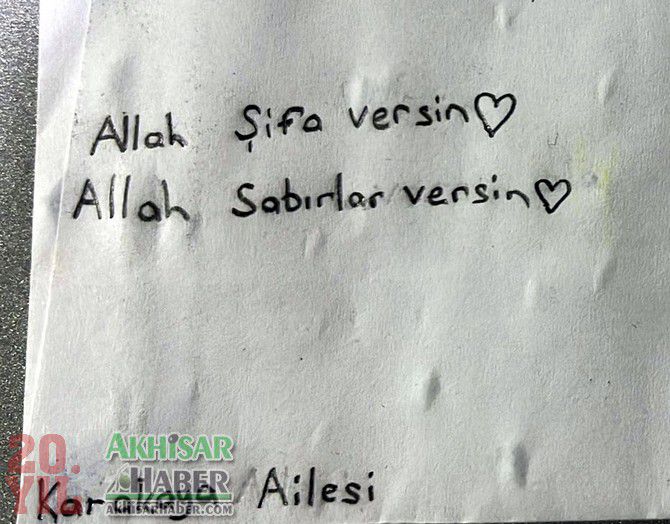 Allah Şifa versin♡
Allah Sabırlar versin♡
20. YIL
AKHİSAR
HABER
AKHISARHABER.COM
Karakaya Ailesi